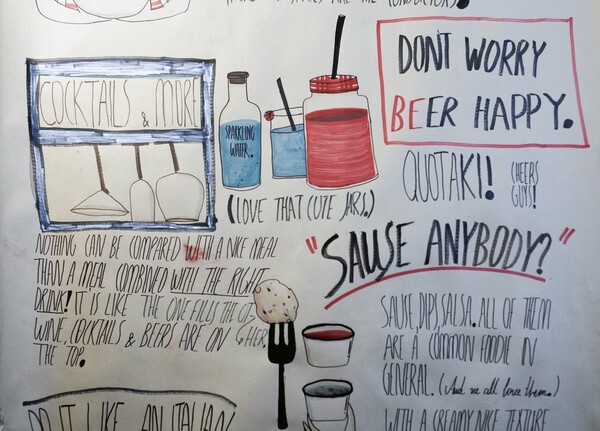 COCKTAILS & MORE
SPARKLING
WATER.
(LOVE THAT CUTE JARS.)
NOTHING CAN BE COMPARED WITH A NIKE MEAL
THAN A MEAL COMBINED WITH THE RIGHT
DRINK! IT IS LIKE THE ONE FILLS THE OT-
HER.
WINE, COCKTAILS & BEERS ARE ON
THE TOP.
DO IT LIKE AN ITALIAN
DON'T WORRY
BEER HAPPY.
QUOTAKI!
CHEERS
GUYS!
"SAUSE ANYBODY?"
SAUSE, DIPS, SALSA. ALL OF THEM
ARE A COMMON FOODIE IN
GENERAL. (And we all love them.)
WITH A CREAMY NIKE TEXTURE